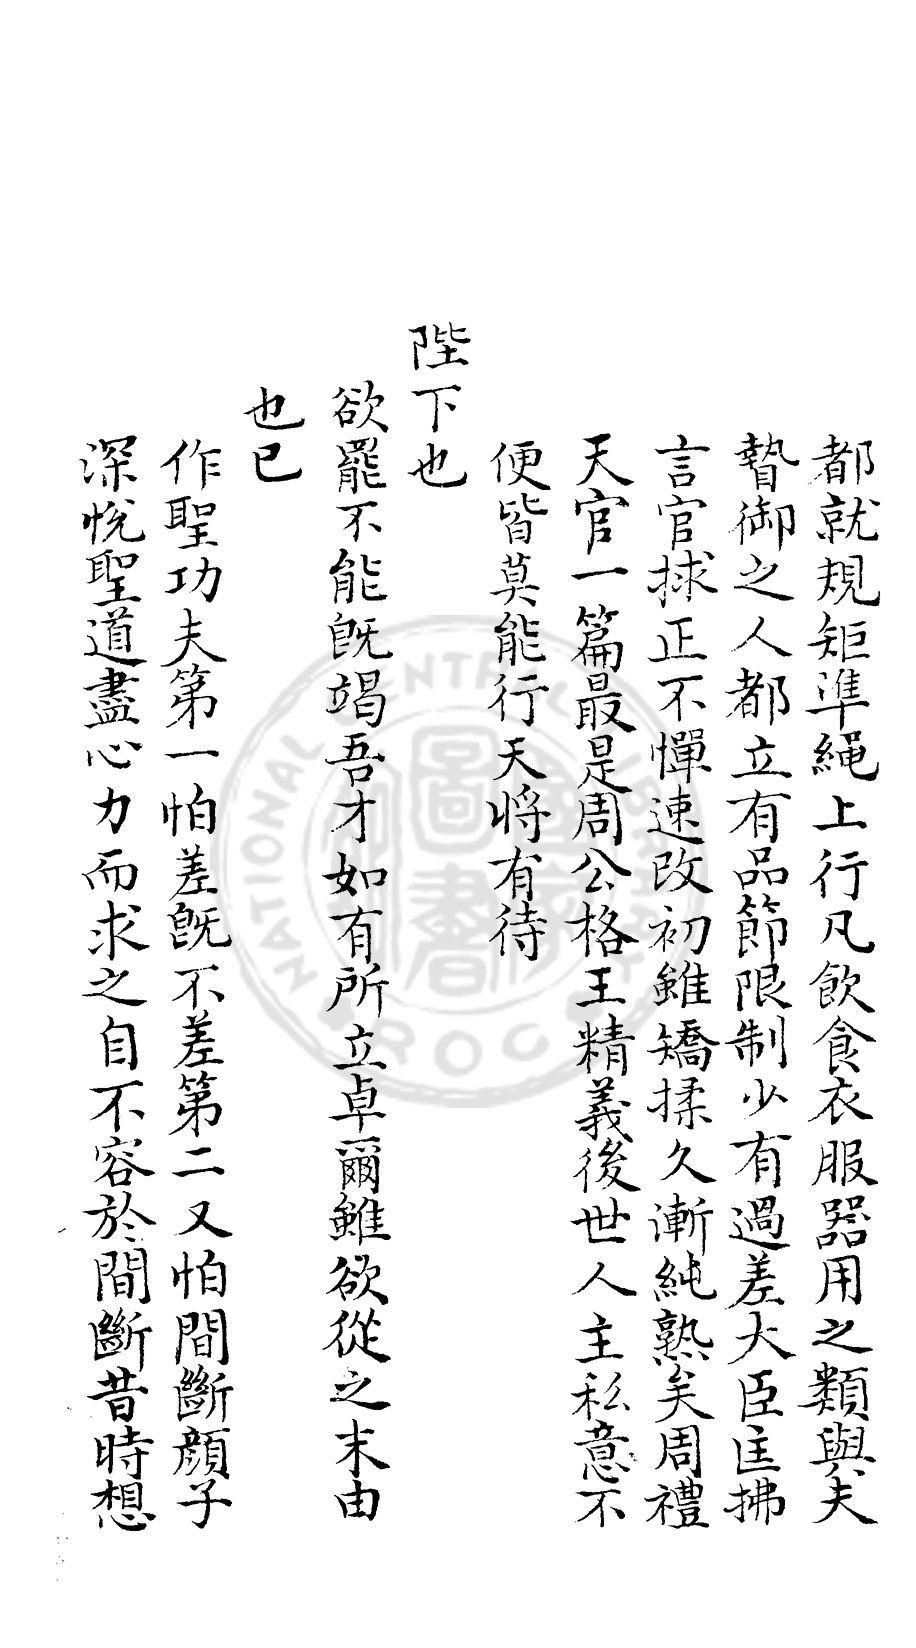 都就規矩準繩上行凡飲食衣服器用之類與夫
暬御之人都立有品節限制少有過差大臣匡拂
言官捄正不憚速改初雖矯揉久漸純熟矣周禮
天官一篇最是周公格王精義後世人主私意不
便皆莫能行天將有待
陛下也
欲罷不能既竭吾才如有所立卓爾雖欲從之末由
也已
作聖功夫第一怕差既不差第二又怕間斷顏子
深悅聖道盡心力而求之自不容於間斷昔時想
NATIONAL CENTRAL LIBRARY
R.O.C.
國家圖書館